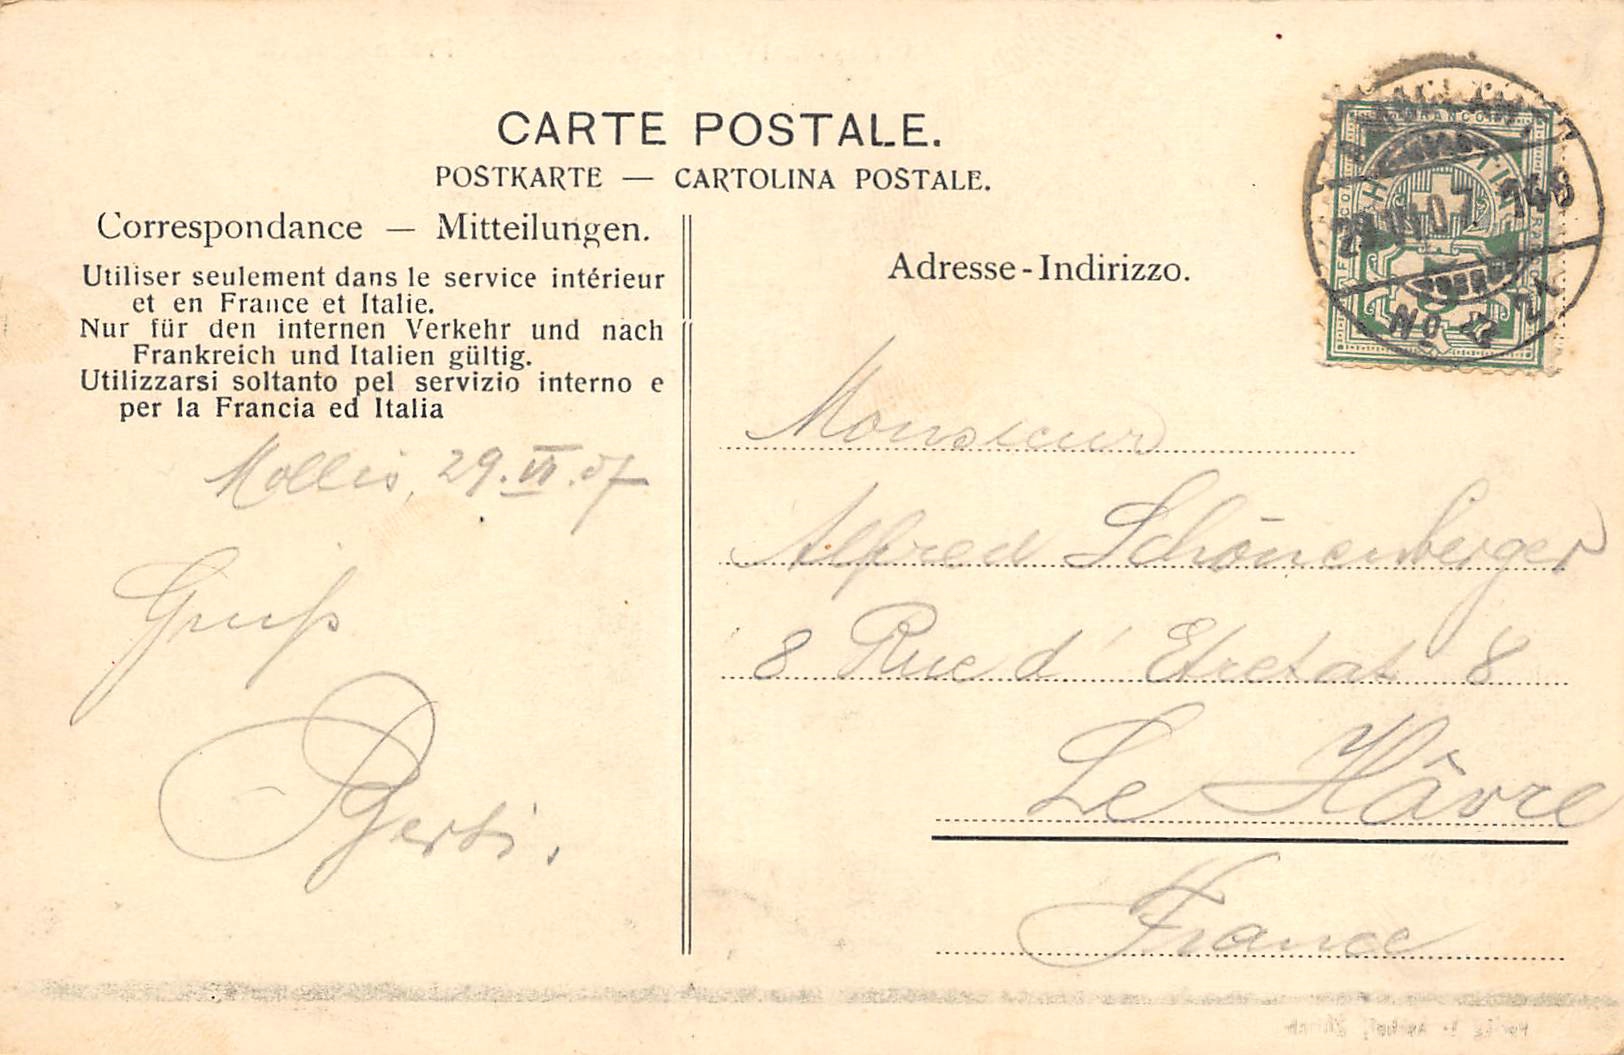 CARTE POSTALE.
POSTKARTE — CARTOLINA POSTALE.
Correspondance — Mitteilungen.
Utiliser seulement dans le service intérieur
et en France et Italie.
Nur für den internen Verkehr und nach
Frankreich und Italien gültig.
Utilizzarsi soltanto pel servizio interno e
per la Francia ed Italia
Mollis, 29. VI. 07
Gruß
Berti.
Adresse - Indirizzo.
FRANCO
Monsieur
Alfred Schönenberger
8 Rue d'Etretat 8
Le Hâvre
France